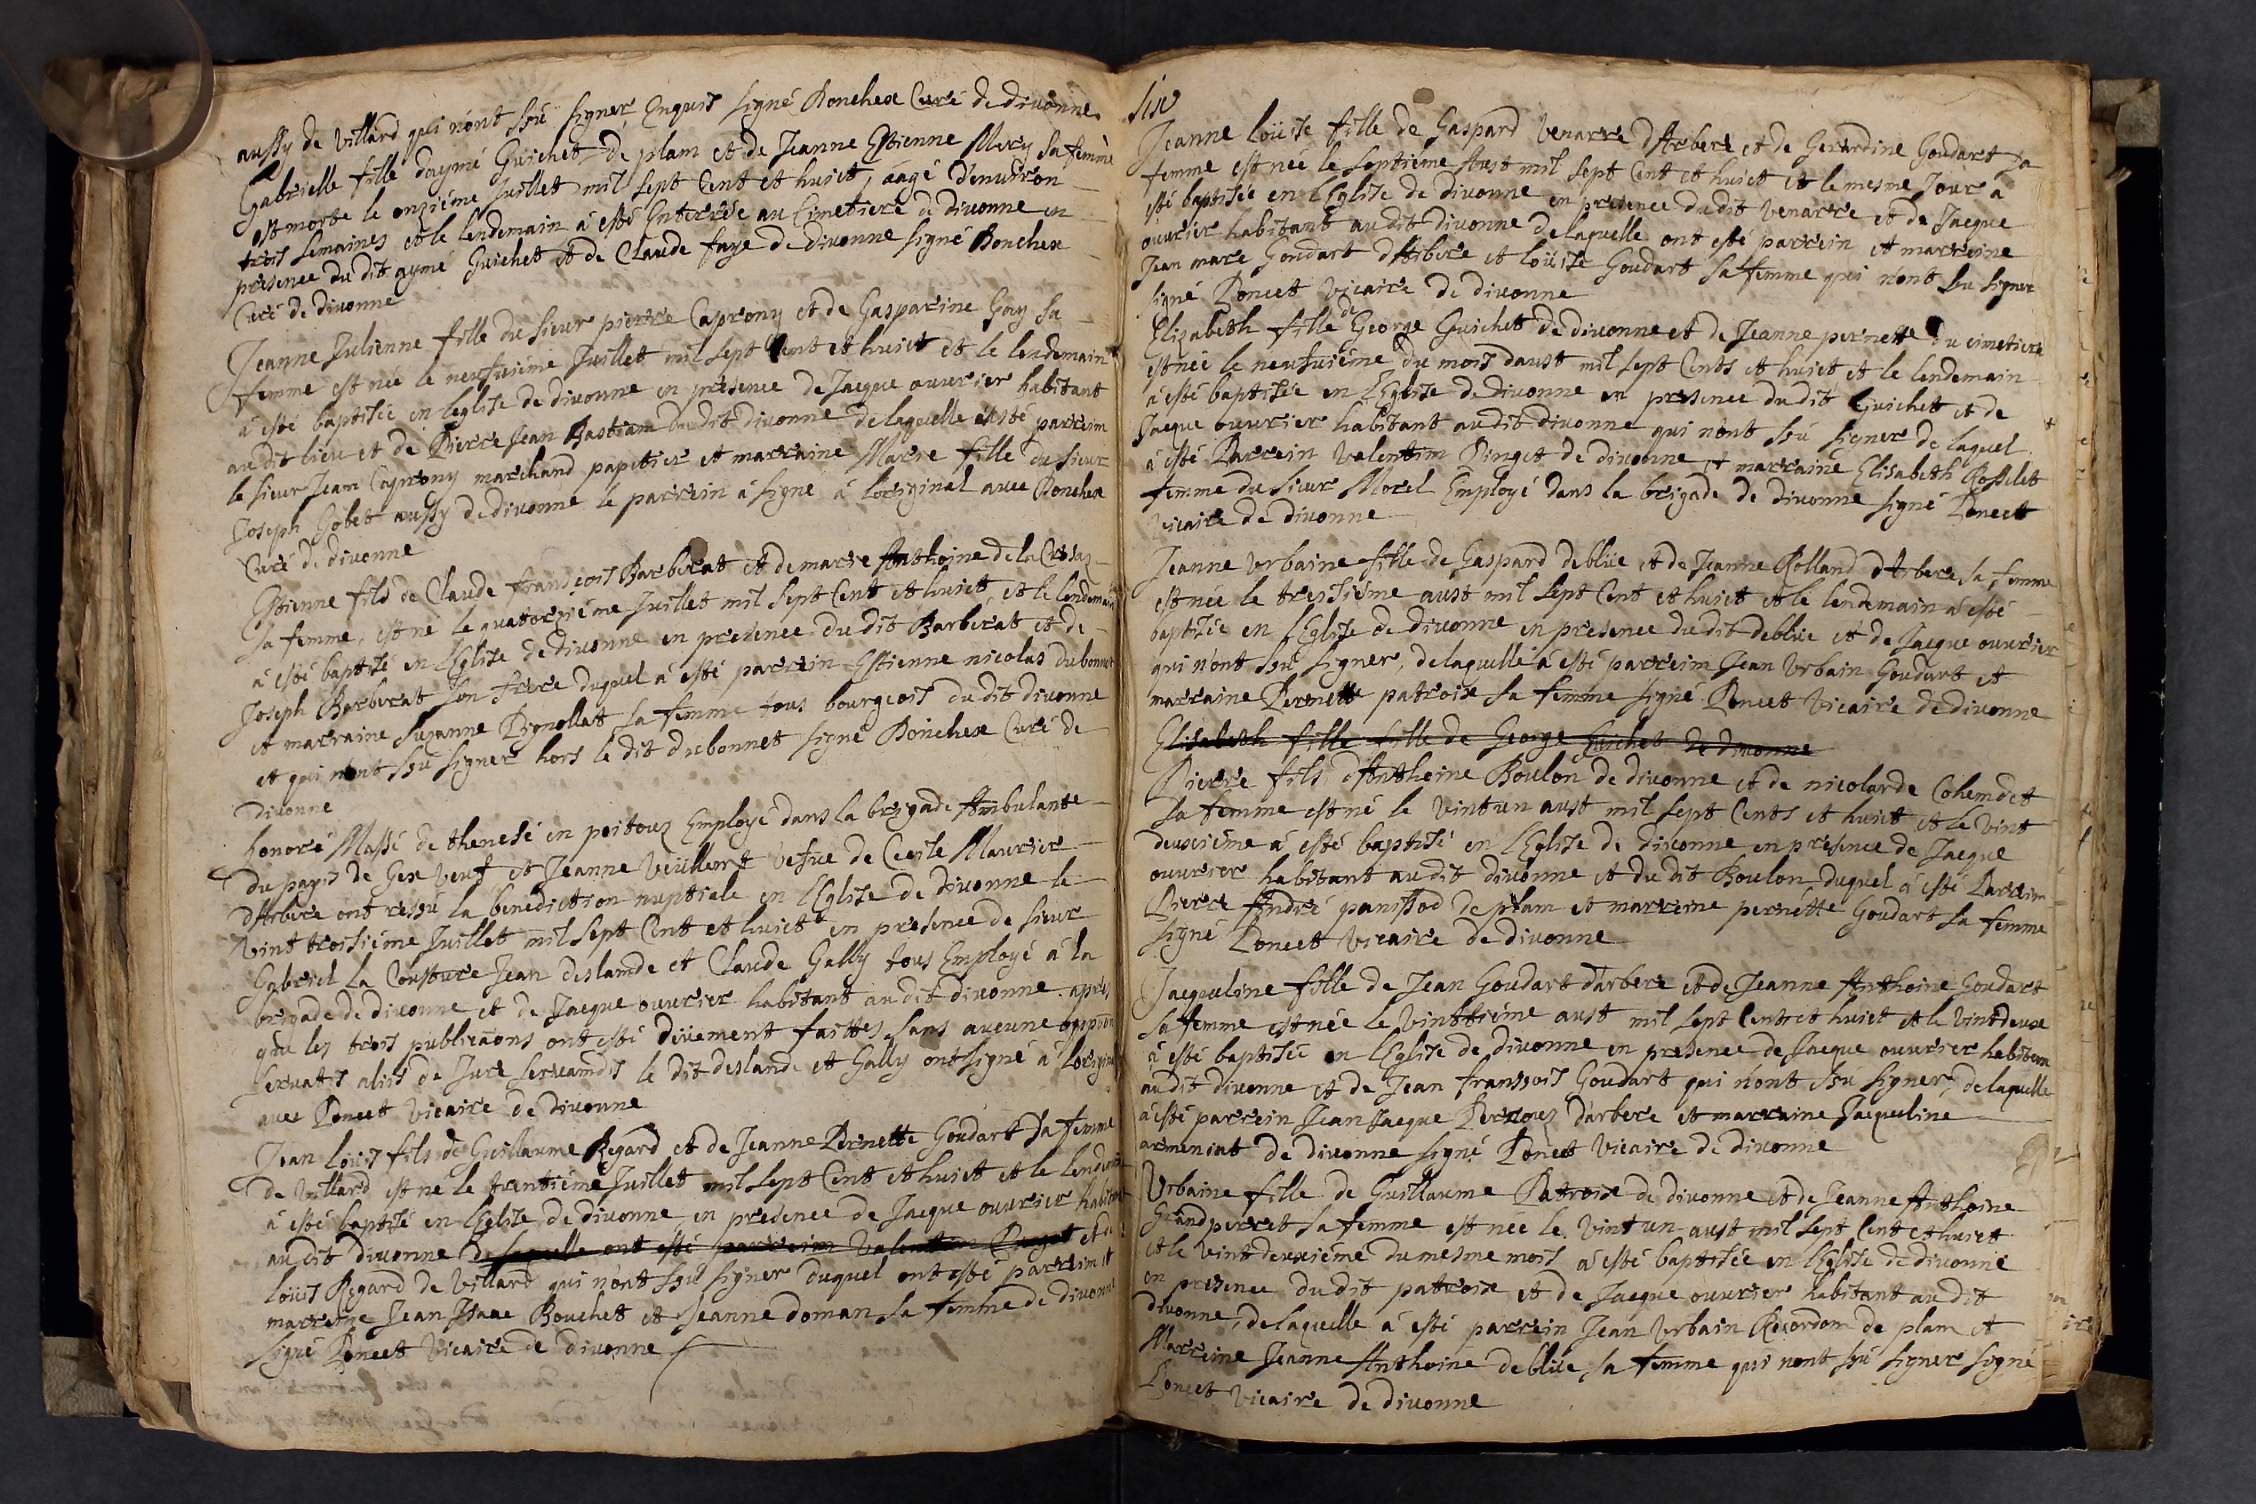 aussy de villard qui n'ont ssu signer enquis signé Bonchex Curé de divonne
Gabrielle fille daymé Guichet de plam et de Jeanne Estienne Mery sa femme
est morte le onziéme Juillet mil sept Cent et huict, aagé d'environ
trois semaines et le lendemain á esté Enterrée au Cimetiere de divonne en
présence du dit aymé Guichet et de Claude faye de divonne signé Bonchex
Curé de divonne
Jeanne Julienne fille du sieur pierre Caprony et de Gasparine Gay sa
femme est née le neufuiéme Juillet mil sept Cent et huict et le lendemain
á esté baptisée en leglise de divonne en présence de Jacque ouvrier habitant
au dit lieu et de Pierre Jean Bastiam du dit divonne de laquelle a esté parrein
le sieur Jean Caprony marchand papetier et marraine Marie fille du sieur
Joseph Gobet aussy de divonne le parrein á signe á l'original avec Bonchex
Curé de divonne
Estienne fils de Claude françois Barberat et de marie Anthoine de la
sa femme, est né le quatorziéme Juillet mil sept Cent et huict, et le lendemain
á esté baptisé en l'Eglise de divonne en presence du dit Barberat et de
Joseph Barberat son frere duquel á esté parrein Estienne nicolas dubonnet
et marraine Suzanne Pignollat sa femme tous bourgeois du dit divonne
et qui n'ont ssu signer hors le dit dubonnet signé Bonchex Curé de
divonne
honoré Massé de thenesé en poitouz Employé dans la brigade Ambulante
du payis de Gex veuf et Jeanne Veüillert vefve de Cecile Maurier
d'Arbere ont ressu la bénédiction nuptiale en l'Eglise de divonne le
vint troisiéme Juillet mil sept Cent et huict en presence de sieur
Gabriel la Consture Jean deslande et Claude Gally tous Employé á la
brigade de divonne et de Jacque ouvrier habitant au dit divonne apres
que les trois publicaons ont esté düement faittes sans aucune
servatis aliis de Jure servamdis le dit deslande et Gally ont signé á Lorigine
avec Poncet vicaire de divonne
Jean loüis fils de Guillaume Regard et de Jeanne Pernette Goudart sa femme
de villard est né le trentiéme Juillet mil sept Cent et huict et le
á esté baptisé en l'Eglise de divonne en présence de Jacque ouvrier
au dit divonne de laquelle ont esté parreim Valentim Pinget et de
loüis Regard de villard qui n'ont ssu signer duquel ont esté parreim et
marreine Jean Isaac Bouchet et Jeanne doman sa femme de divonne
signé Poncet vicaire de divonne
Six
Jeanne loüise fille de Gaspard Venarre d'Arbere et de Gerardine Goudart sa
femme est née le septiéme Aust mil sept Cent et huict et le mesme Jour á
esté baptisée en l'Eglise de divonne en présence dudit venarre et de Jacque
ouvrier habitant audit divonne de laquelle ont esté parrein et marreine
Jean marc Goudart d'Arbere et loüise Goudart sa femme qui n'ont ssu signer
signé Poncet vicaire de divonne
Elizabeth fille de George Guichet de divonne et de Jeanne pernette du cimetiere
est née le neufuiéme du mois daust mil sept Cents et huict et le lendemain
á esté baptisée en l'Eglise de divonne en presence du dit Guichet et de
Jacque ouvrier habitant au dit divonne qui n'ont ssu signer de laquel
á esté Parrein Valentim Pinget de divonne et marraine Elisabeth Rosselet
femme du sieur Morel Employé dans la brigade de divonne signé Poncet
vicaire de divonne
Jeanne Urbaine fille de Gaspard deblüe et de Jeanne Rolland d'Arbere sa femme
est née le tresiéme aust mil sept Cent et huict et le lendemain á esté
baptisée en l'Eglise de divonne en presence du dit deblüe et de Jacque ouvrier
qui n'ont ssu signer, de laquelle á esté parreim Jean Urbain Goudart et
marraine Pernette patroix sa femme signé Poncet vicaire de divonne
Elisabeth fille fille de George Guichet de divonne
Pierre fils d'Anthoine Boulon de divonne et de nicolarde Cohendet
sa femme est né le vint un aust mil sept Cents et huict et le vint
deuxiéme á esté baptisé en l'Eglise de divonne en présence de Jacque
ouvrier habitant au dit divonne et du dit Boulon duquel á esté Parreim
Pierre André panissod de plam et marreine pernette Goudart sa femme
signé Poncet vicaire de divonne
Jacqueline fille de Jean Goudart d'arbere et de Jeanne Anthoine Goudart
sa femme est née le vinttiéme aust mil sept Cent et huict et le vint deux
á esté baptisée en l'Eglise de divonne en presence de Jacque ouvrier habitem
au dit divonne et de Jean franssois Goudart qui n'ont ssu signer, de laquelle
á esté parrein Jean Jacque Pernouz d'arbere et marraine Jacqueline
armeniat de divonne signé Poncet vicaire de divonne
Urbaine fille de Guillaume Patroix de divonne et de Jeanne Anthoine
Grandperret sa femme est née le vint un aust mil sept Cent et huict
et le vint deuxiéme du mesme mois á esté baptisée en l'Eglise de divonne
en presence du dit patroix et de Jacque ouvrier habitant au dit
divonne, de laquelle á esté parrein Jean Urbain Recordom de plam et
Marreine Jeanne Anthoine deblüe sa femme qui n'ont ssu signer signé
Poncet vicaire de divonne